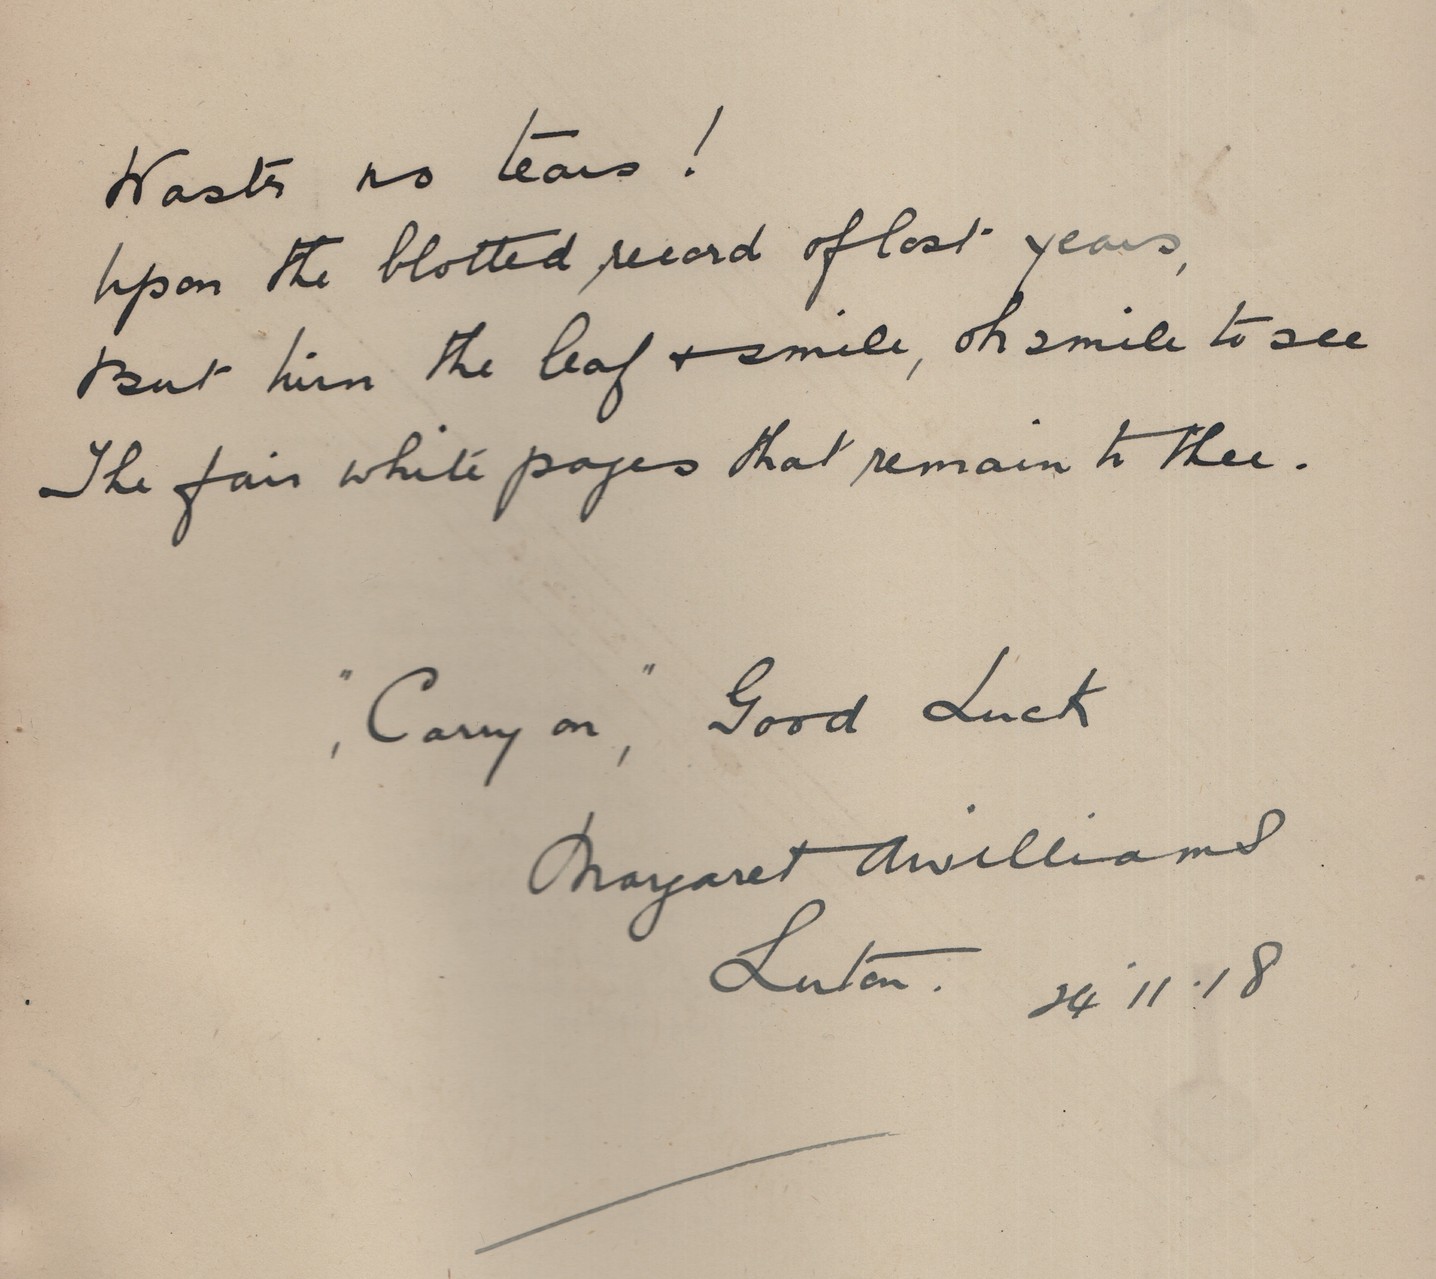 Waste no tears!
Upon the blotted record of lost years,
But turn the leaf & smile, oh smile to see
The fair white pages that remain to thee.
"Carry on," Good Luck
Margaret AWilliams
Luton. 24.11.18